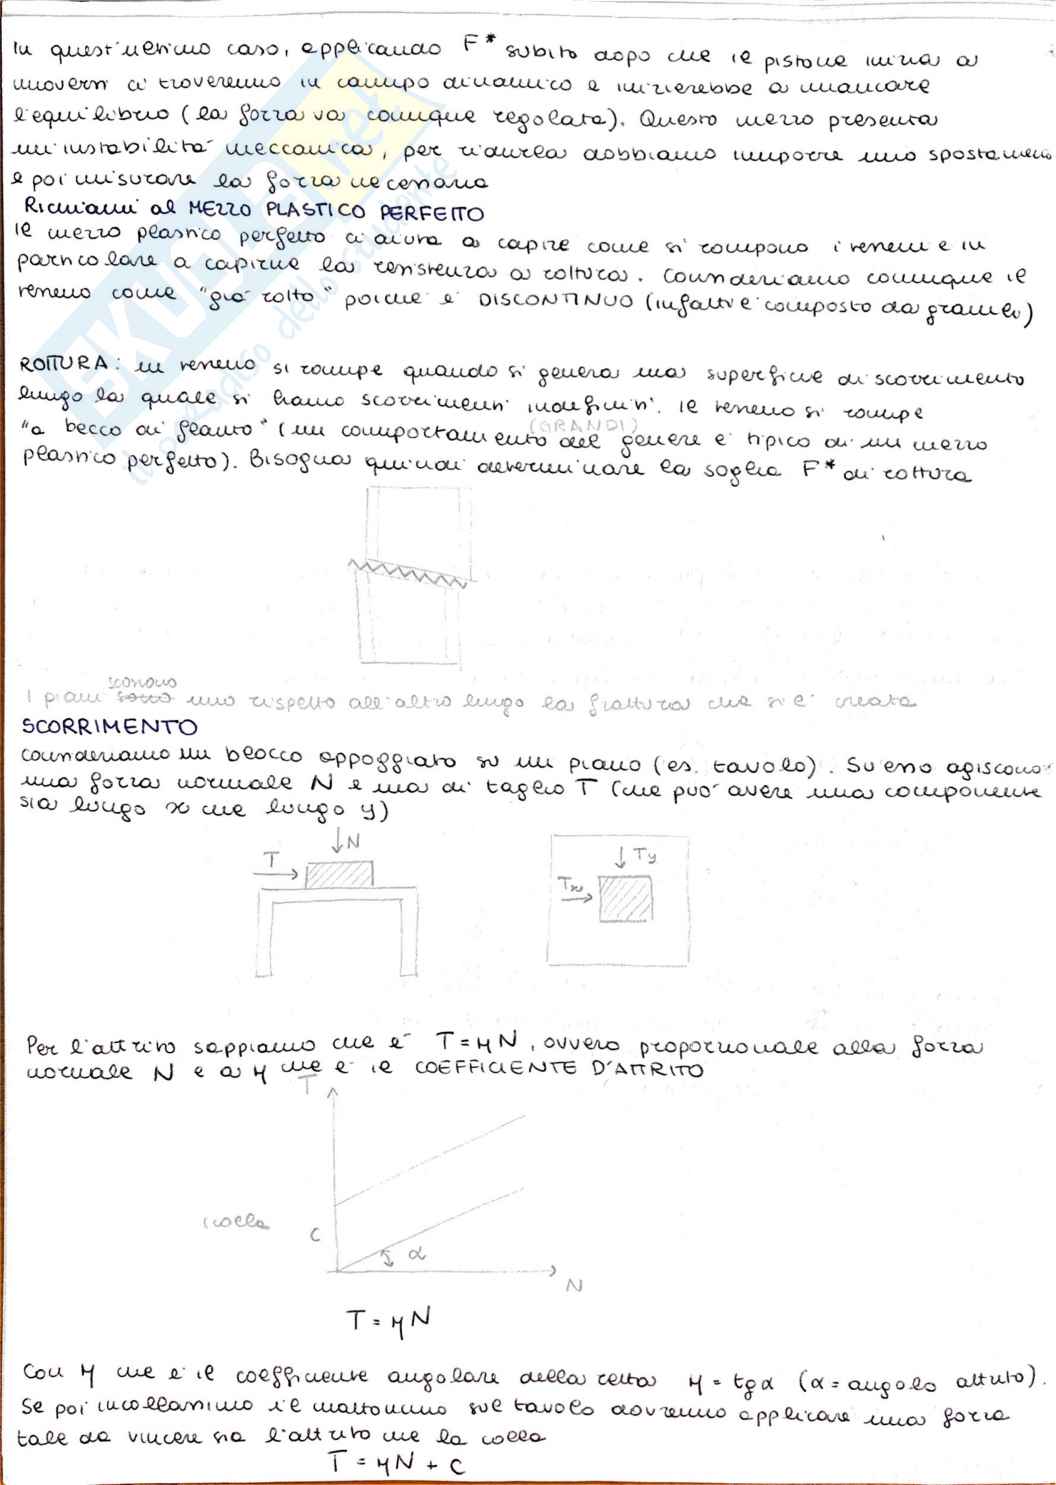 In quest'ultimo caso, applicando F* subito dopo che il pistone inizia a
muoversi ci troveremo in campo dinamico e inizierebbe a mancare
l'equilibrio (la forza va comunque regolata). Questo mezzo presenta
un'instabilità meccanica, per ridurla dobbiamo imporre uno spostamento
e poi misurare la forza necessaria
Richiami al MEZZO PLASTICO PERFETTO
Il mezzo plastico perfetto ci aiuta a capire come si rompono i terreni e in
particolare a capirne la resistenza a rottura. Consideriamo comunque il
terreno come "già rotto" poiché è DISCONTINUO (infatti è composto da granelli)
ROTTURA: un terreno si rompe quando si genera una superficie di scorrimento
lungo la quale si hanno scorrimenti indefiniti. Il terreno si rompe
(GRANDI)
"a becco di flauto" (un comportamento del genere è tipico di un mezzo
plastico perfetto). Bisogna quindi determinare la soglia F* di rottura
scorrono
I piani sotto uno rispetto all'altro lungo la frattura che si è creata
SCORRIMENTO
Consideriamo un blocco appoggiato su un piano (es. tavolo). Su esso agiscono
una forza normale N e una di taglio T (che può avere una componente
sia lungo x che lungo y)
N
T
Ty
Tx
Per l'attrito sappiamo che è T = μN, ovvero proporzionale alla forza
normale N e a μ che è il COEFFICIENTE D'ATTRITO
T
colla
C
α
N
T = μN
Con μ che è il coefficiente angolare della retta μ = tgα (α = angolo attrito).
Se poi incollassimo il mattoncino sul tavolo dovremmo applicare una forza
tale da vincere sia l'attrito che la colla
T = μN + C
SKUOLA.net
il paradiso dello studente